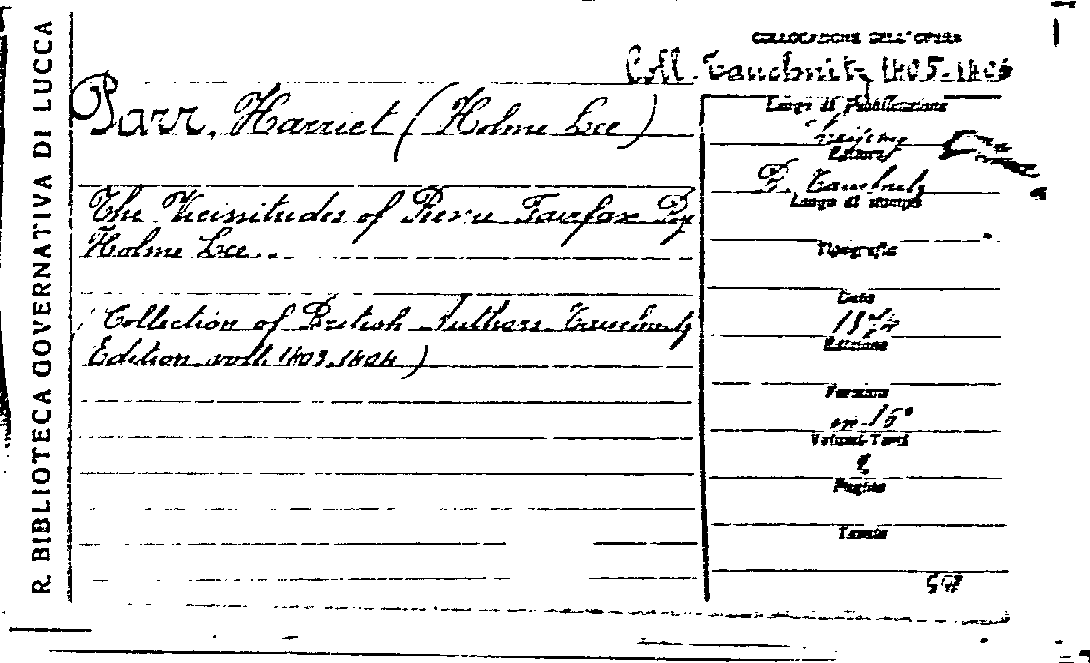 R. BIBLIOTECA GOVERNATIVA DI LUCCA
COLLOCAZIONE DELL'OPERA
Coll. Tauchnitz 1405-1406
Parr, Harriet (Holme Lee)
The Vicissitudes of Pierre Fairfax By
Holme Lee..
(Collection of British Authors Tauchnitz
Edition voll. 1403.1404)
Luogo di Pubblicazione
Editore
B. Tauchnitz
Luogo di stampa
Tipografia
Data
Edizione
Formato
in-16°
Volumi-Tomi
2
Pagine
Tavole